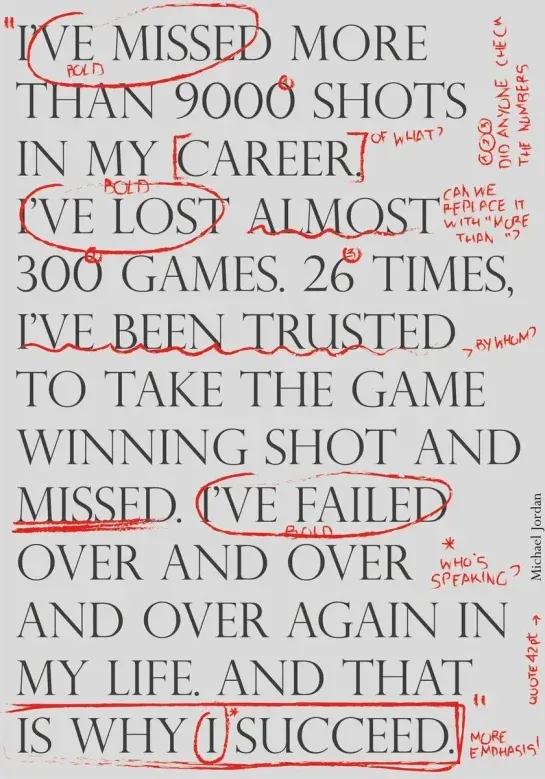 "
I'VE MISSED MORE
BOLD
THAN 9000 SHOTS
1
IN MY [CAREER.]
OF WHAT?
BOLD
I'VE LOST ALMOST
300 GAMES. 26 TIMES,
2 3
I'VE BEEN TRUSTED
, BY WHOM?
TO TAKE THE GAME
WINNING SHOT AND
MISSED. I'VE FAILED
BOLD
OVER AND OVER
AND OVER AGAIN IN
MY LIFE. AND THAT
"
IS WHY I * SUCCEED.
1 2 3
DID ANYONE CHECK
THE NUMBERS
CAN WE
REPLACE IT
WITH "MORE
THAN"?
*
WHO'S
SPEAKING?
Michael Jordan
QUOTE 42pt →
MORE
EMPHASIS!